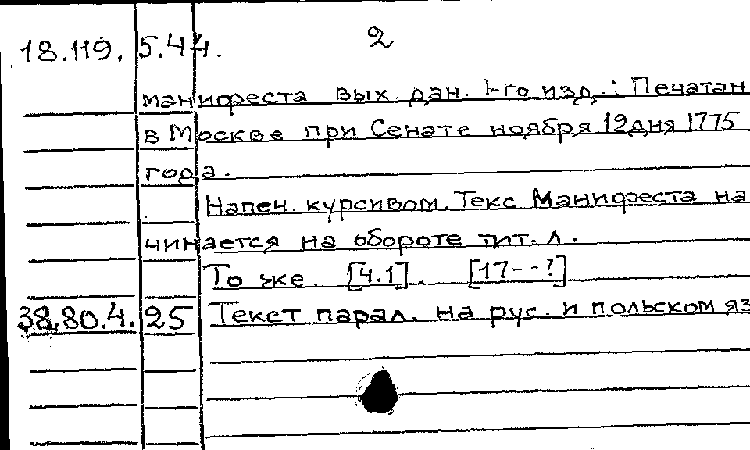 18.119. 5.44. 2
манифеста вых. дан. 1-го изд.: Печатан
в Москве при Сенате ноября 12 дня 1775
года.
Напеч. курсивом. Текс Манифеста на
чинается на обороте тит. л.
То же. [Ч.1]. [17--?]
38.80.4.25 Текст парал. на рус. и польском яз